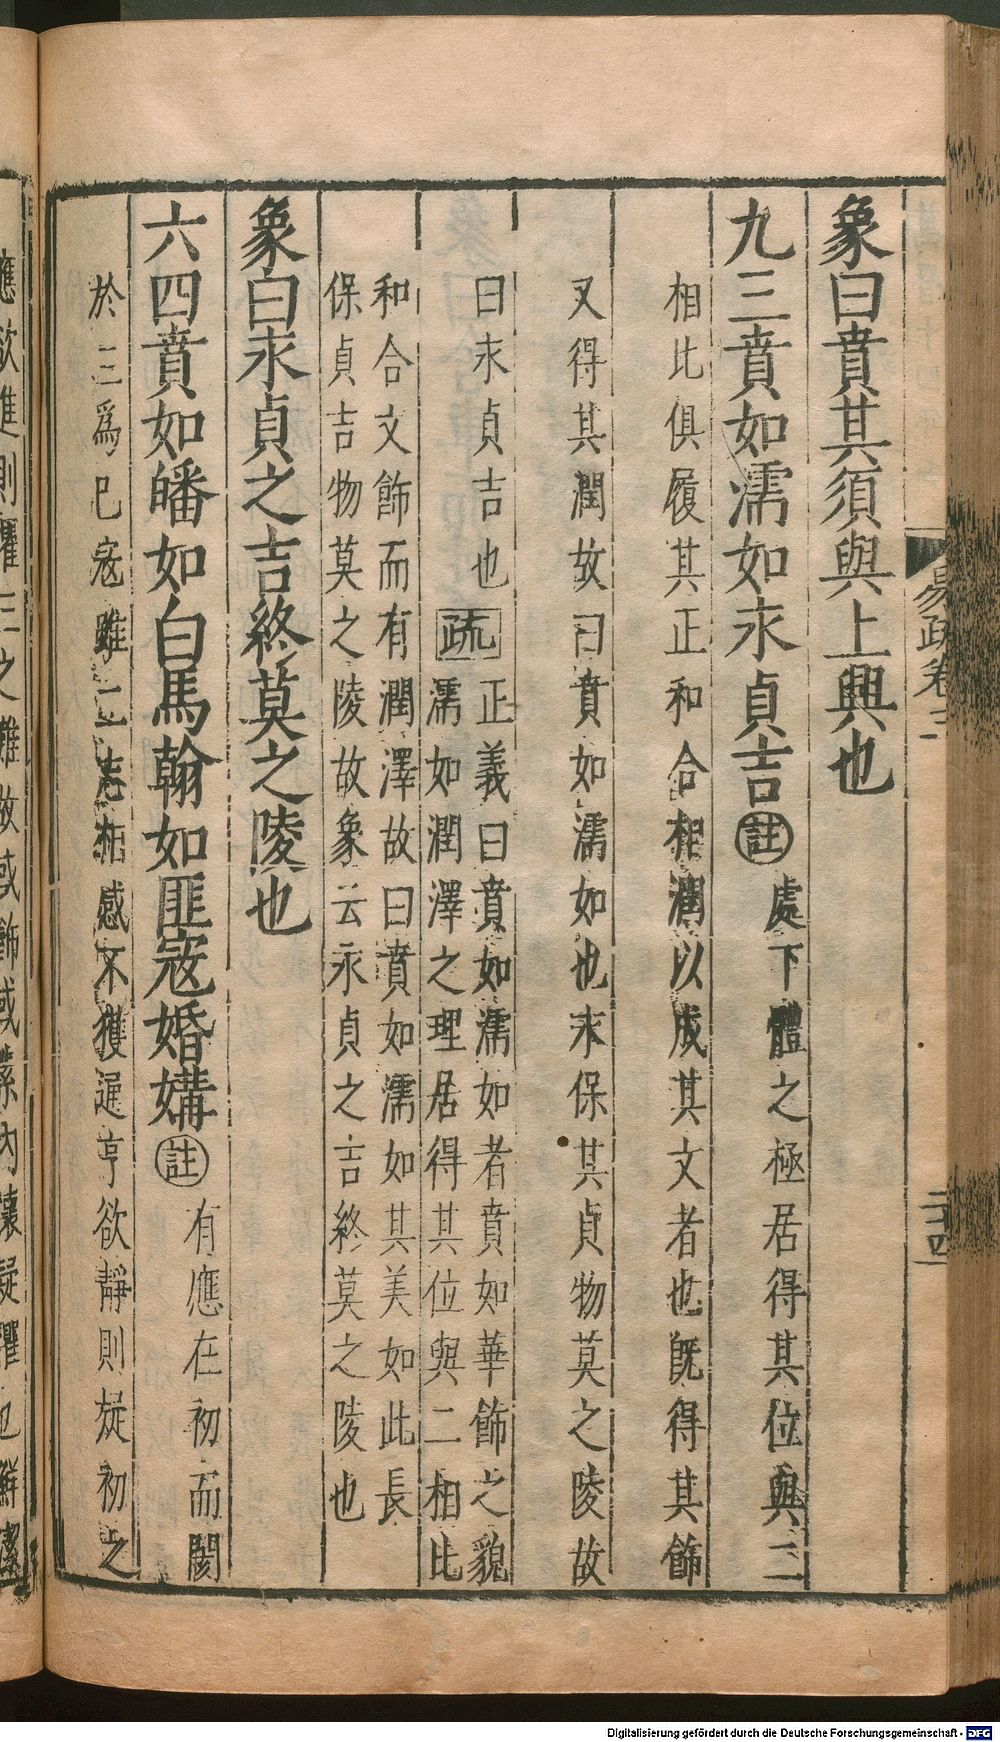 易疏卷三
二十四
象曰賁其須與上興也
九三賁如濡如永貞吉註處下體之極居得其位與二
相比俱履其正和合相潤以成其文者也旣得其飾
又得其潤故曰賁如濡如也永保其貞物莫之陵故
曰永貞吉也疏正義曰賁如濡如者賁如華飾之貌
濡如潤澤之理居得其位與二相比
和合文飾而有潤澤故曰賁如濡如其美如此長
保貞吉物莫之陵故象云永貞之吉終莫之陵也
象曰永貞之吉終莫之陵也
六四賁如皤如白馬翰如匪寇婚媾註有應在初而閡
於三爲己寇雖二志相感不獲通亨欲靜則疑初之
應欲進則懼三之難故或飾或素內懷疑懼也鮮潔
Digitalisierung gefördert durch die Deutsche Forschungsgemeinschaft - DFG